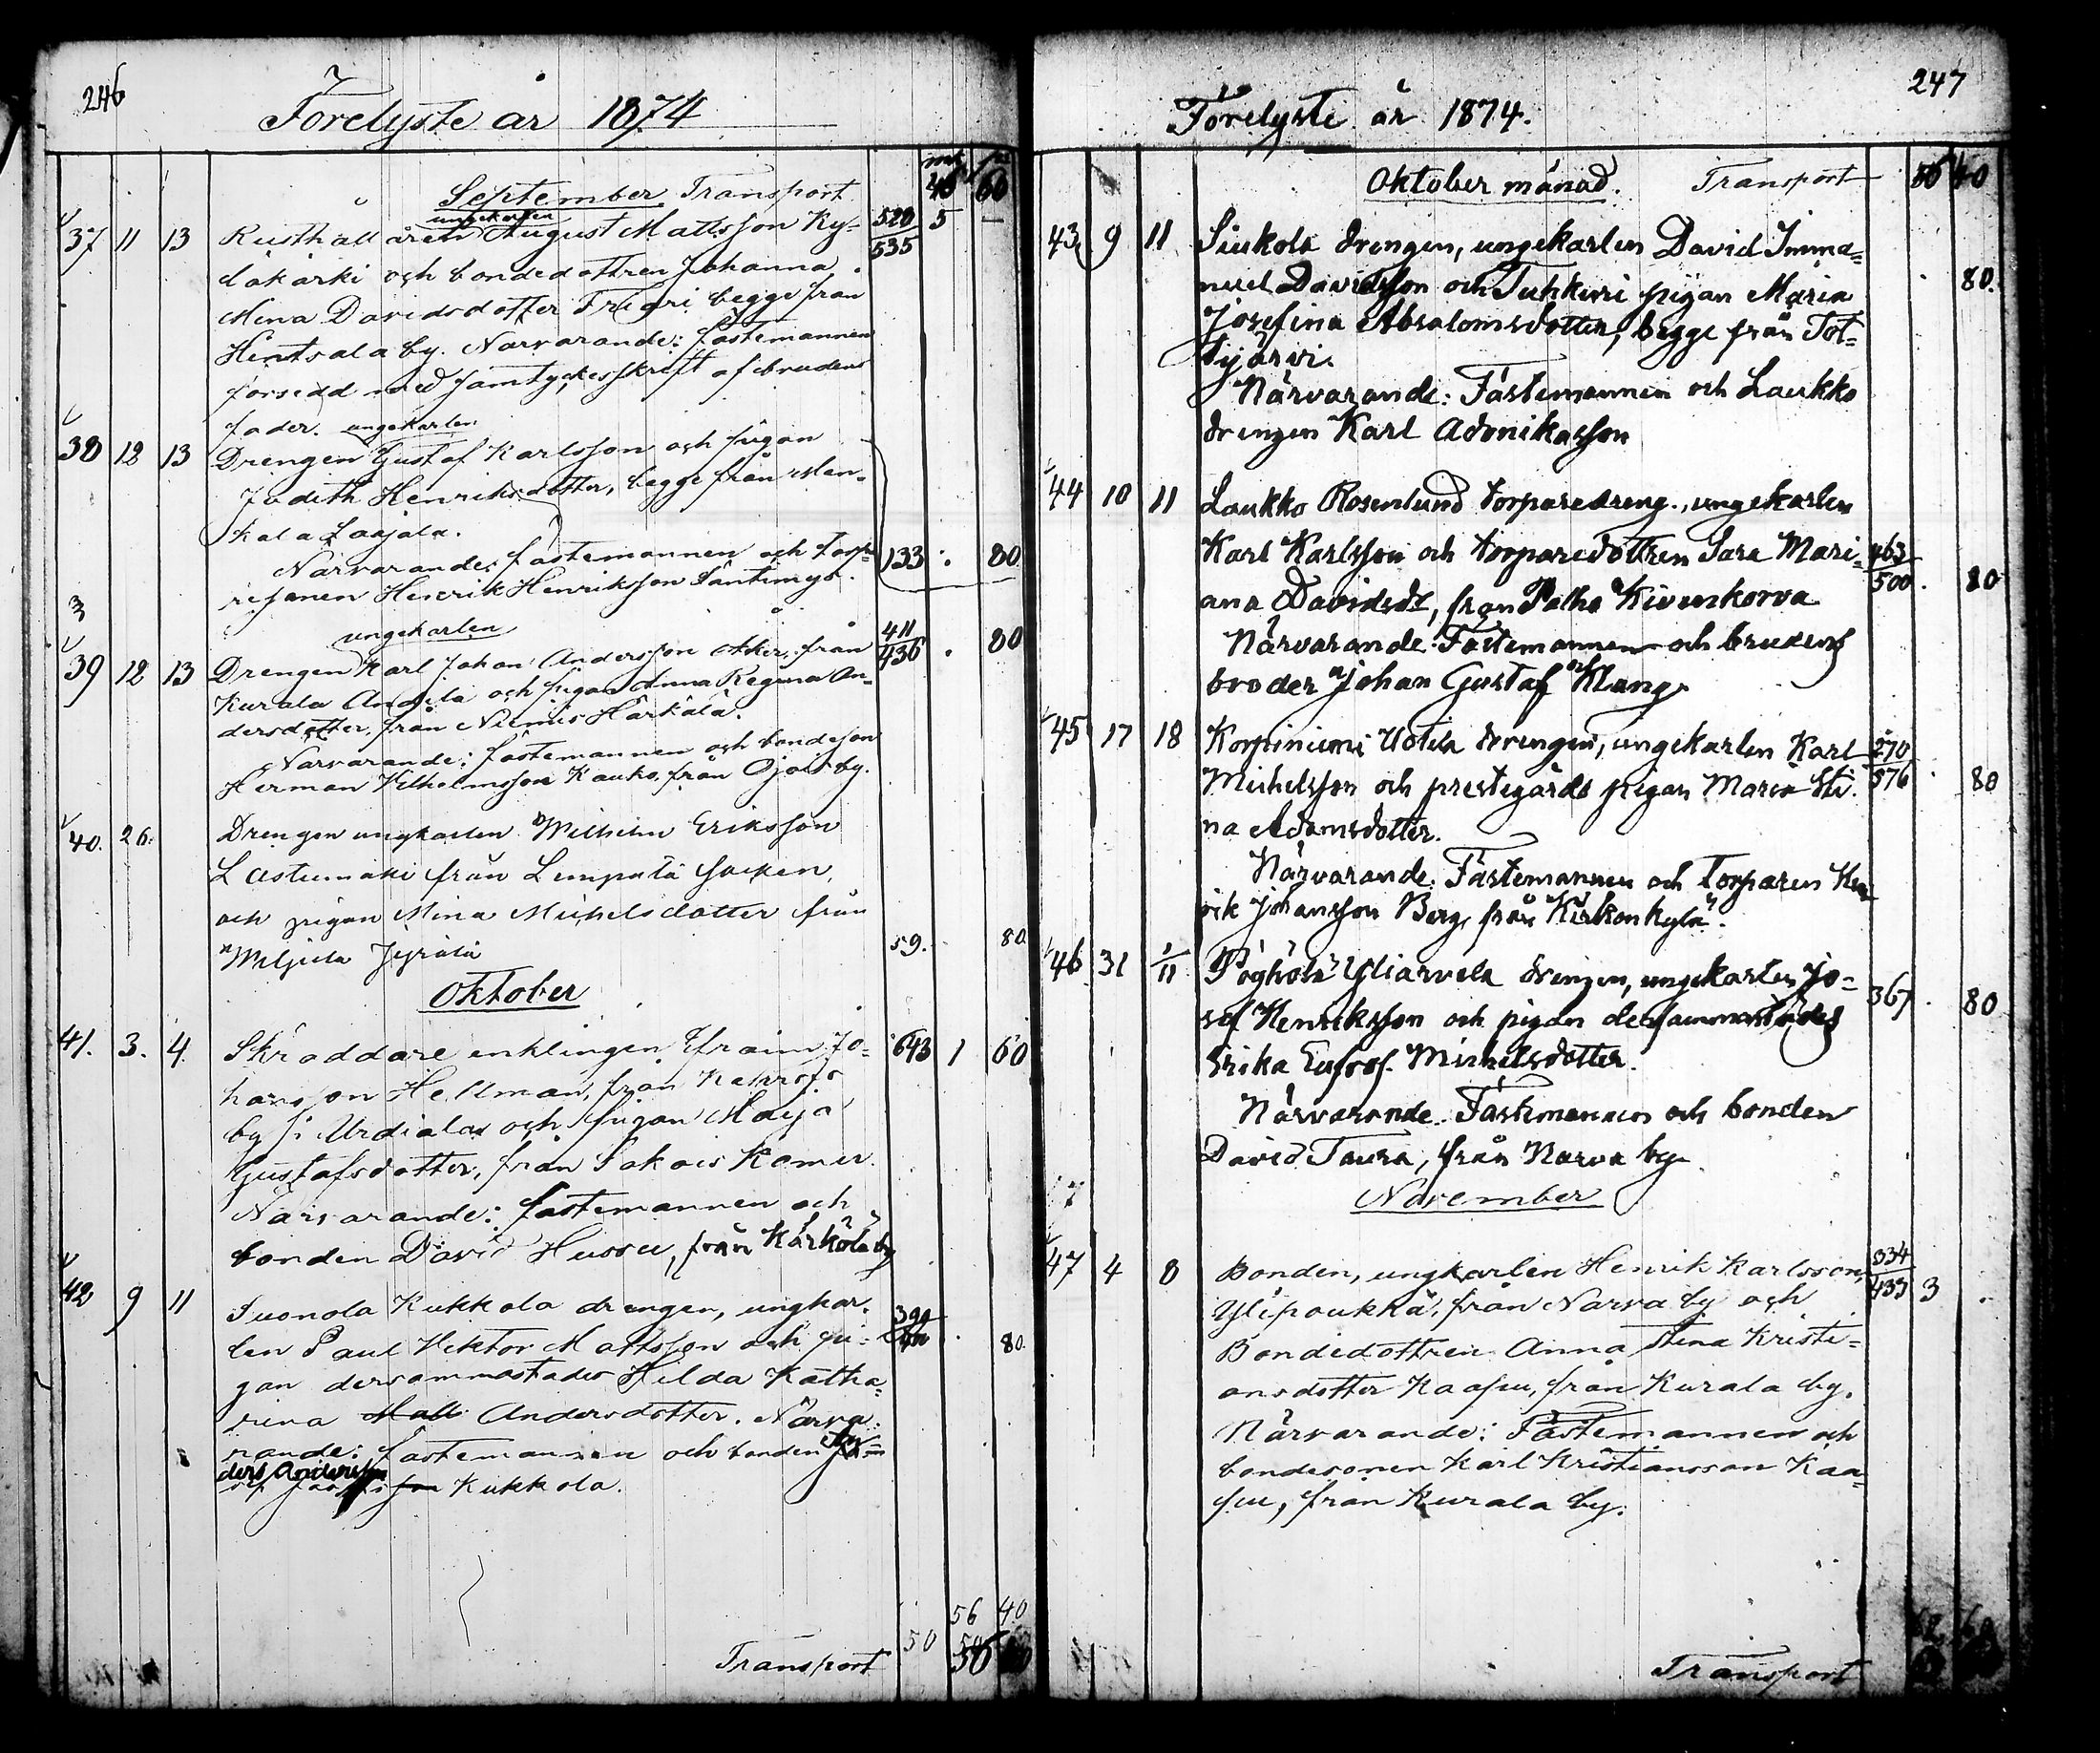 246
Förelyste år 1874
mk pi
September Transport 46 60
ungekarlen
37 11 13 Rusthållaren August Mattsson Ky- 520 5 —
läkärki och bondedottren Johanna 535
Mina Davidsdotter Frigri begge från
Hintsala by. Närvarande: fästemannen
försedd med samtyckesskrift af brudens
fader. ungekarlen
38 12 13 Drengen Gustaf Karlsson och pigan
Judith Henriksdotter, begge från Men-
kala Laajala.
Närvarande: fästemannen och torpa- 133 . 80
resonen Henrik Henriksson Säntimys.
3
ungekarlen 411
39 12 13 Drengen Karl Johan Andersson från 436 . 80
Kurala Andila och pigan Anna Regina An-
dersdotter, från Niemis Härkälä.
Närvarande: fästemannen och bondeson
Herman Vilhelmsson Kauko, från Ojois by.
40. 26. Drengen ungkarlen Wilhelm Eriksson
Lastumäki från Lempälä socken,
och pigan Mina Michelsdotter från
Jyrälä 59. 80
Oktober
41. 3. 4. Skräddare enklingen Efraim Jo- 643 1 60
hansson Hellman, från
by i Urdiala och pigan Maija
Gustafsdotter, från Sakois Komer.
Närvarande: fästemannen och
bonden David Hussu, från Kärkölä by
42 9 11 Suonola Kukkola drengen, ungkar- 390
len Paul Viktor Mattsson och pi- . 80.
gan dersammastädes Hilda Katha-
rina Matt Andersdotter. Närva-
rande: fästemannen och bonden
ders Andersson Kukkola.
56 40
Transport 50 56

247
Förelyste år 1874.
Oktober månad. Transport 56 40
43 9 11 Siukola drengen, ungekarlen David Imma-
nuel Davidsson och Tuhkuri pigan Maria . 80.
Josefina Absalomsdotter, begge från Tot-
tijärvi.
Närvarande: Fästemannen och Laukko
drengen Karl Adonikasson
44 10 11 Laukko Rosenlund torparedreng., ungekarlen
Karl Karlsson och torparedottren Sara Mari- 463
ana Davidsdr, från Palho Kivenkorva 500 . 80
Närvarande: Fästemannen och brudens
broder Johan Gustaf Klang.
45 17 18 Korpiniemi Uotila drengen, ungekarlen Karl 270
Michelsson och prestegårds pigan Maria Sti- 576 . 80
na Adamsdotter.
Närvarande: Fästemannen och Torparen Hen-
rik Johansson Berg, från Kirkonkylä.
46 31 1/11 Pöyhölä Yliarvela drengen, ungekarlen Jo- 367 . 80
sef Henriksson och pigan dersammastädes
Erika Eufros. Michelsdotter.
Närvarande: Fästemannen och bonden
David Taura, från Narva by.
November
47 4 8 Bonden, ungkarlen Henrik Karlsson 334
Ylipoukka, från Narva by och 433 3 .
Bondedottren Anna Stina Kristi-
ansdotter Kaapu, från Kurala by.
Närvarande: Fästemannen och
bondesonen Karl Kristiansson Kaa-
pu, från Kurala by.
Transport